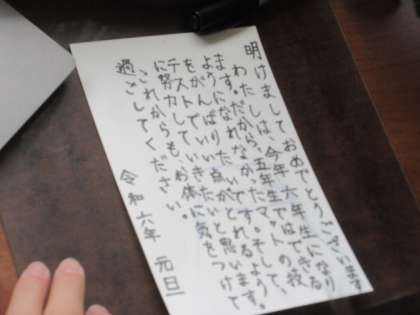 明けましておめでとうございます
わたしは、今年六年生になり
ます。だから、五年生ではでき
なかったマット
ようになりたいです。そして、
に努力していきたいと思います。
これからもお体に気をつけて
過ごしてください。
令和六年 元旦